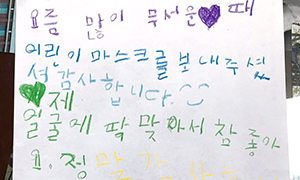 요즘 많이 무서운💜때
어린이 마스크를 보내주셔
셔 감사합니다.
💚제
얼굴에 딱 맞아서 참 좋아
요. 정말